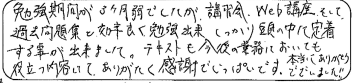 勉強期間が3ヶ月弱でしたが、講習会、Web講座、そして
過去問題集と効率良く勉強出来、しっかり頭の中に定着
する事が出来ました。テキストも今後の業務においても
役立つ内容にて、ありがたく感謝でいっぱいです。本当にありがとう
ございました!!